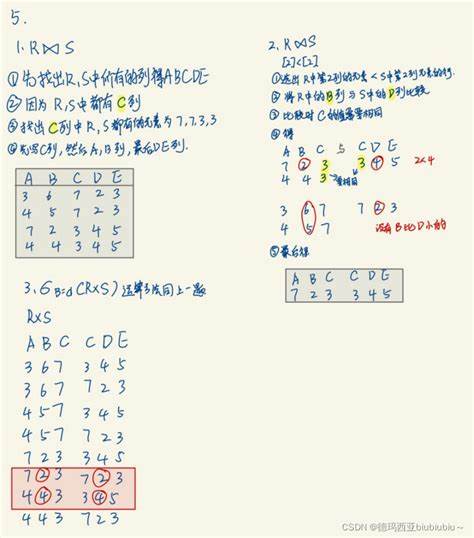 5.
1. R⋈S
①先找出R,S中所有的列得ABCDE
②因为R,S中都有C列
③找出C列中R,S都有的元素为7,7,3,3
④先写C列,然后A,B列,最后DE列.
A B C D E
3 6 7 2 3
4 5 7 2 3
7 2 3 4 5
4 4 3 4 5
2. R⋈S
[2]<[2]
①选出R中第2列的元素<S中第2列元素的行.
②将R中的B列与S中的D列比较
③比较时C的值需要相同
④得
A B C S C D E
7 2 3 3 4 5 2<4
4 4 3 要相同
3 6 7 7 2 3
4 5 7 没有B比D小的
⑤最后得
A B C D E
7 2 3 3 4 5
3. σB=d(R×S) 运算方法同上一题
R×S
A B C C D E
3 6 7 3 4 5
3 6 7 7 2 3
4 5 7 3 4 5
4 5 7 7 2 3
7 2 3 3 4 5
7 2 3 7 2 3
4 4 3 3 4 5
4 4 3 7 2 3
CSDN @德玛西亚biubiubiu～